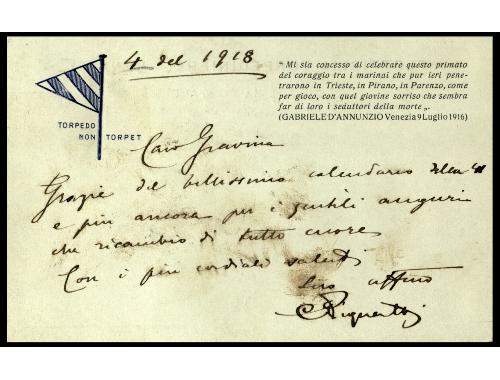 4 del 1918
TORPEDO
NON TORPET
" Mi sia concesso di celebrare questo primato
del coraggio tra i marinai che pur ieri pene-
trarono in Trieste, in Pirano, in Parenzo, come
per gioco, con quel giovine sorriso che sembra
far di loro i seduttori della morte „.
(GABRIELE D'ANNUNZIO Venezia 9 Luglio 1916)
Caro Gravina
Grazie del bellissimo calendario della
e più ancora per i gentili auguri
che ricambio di tutto cuore
Con i più cordiali saluti
Suo affmo